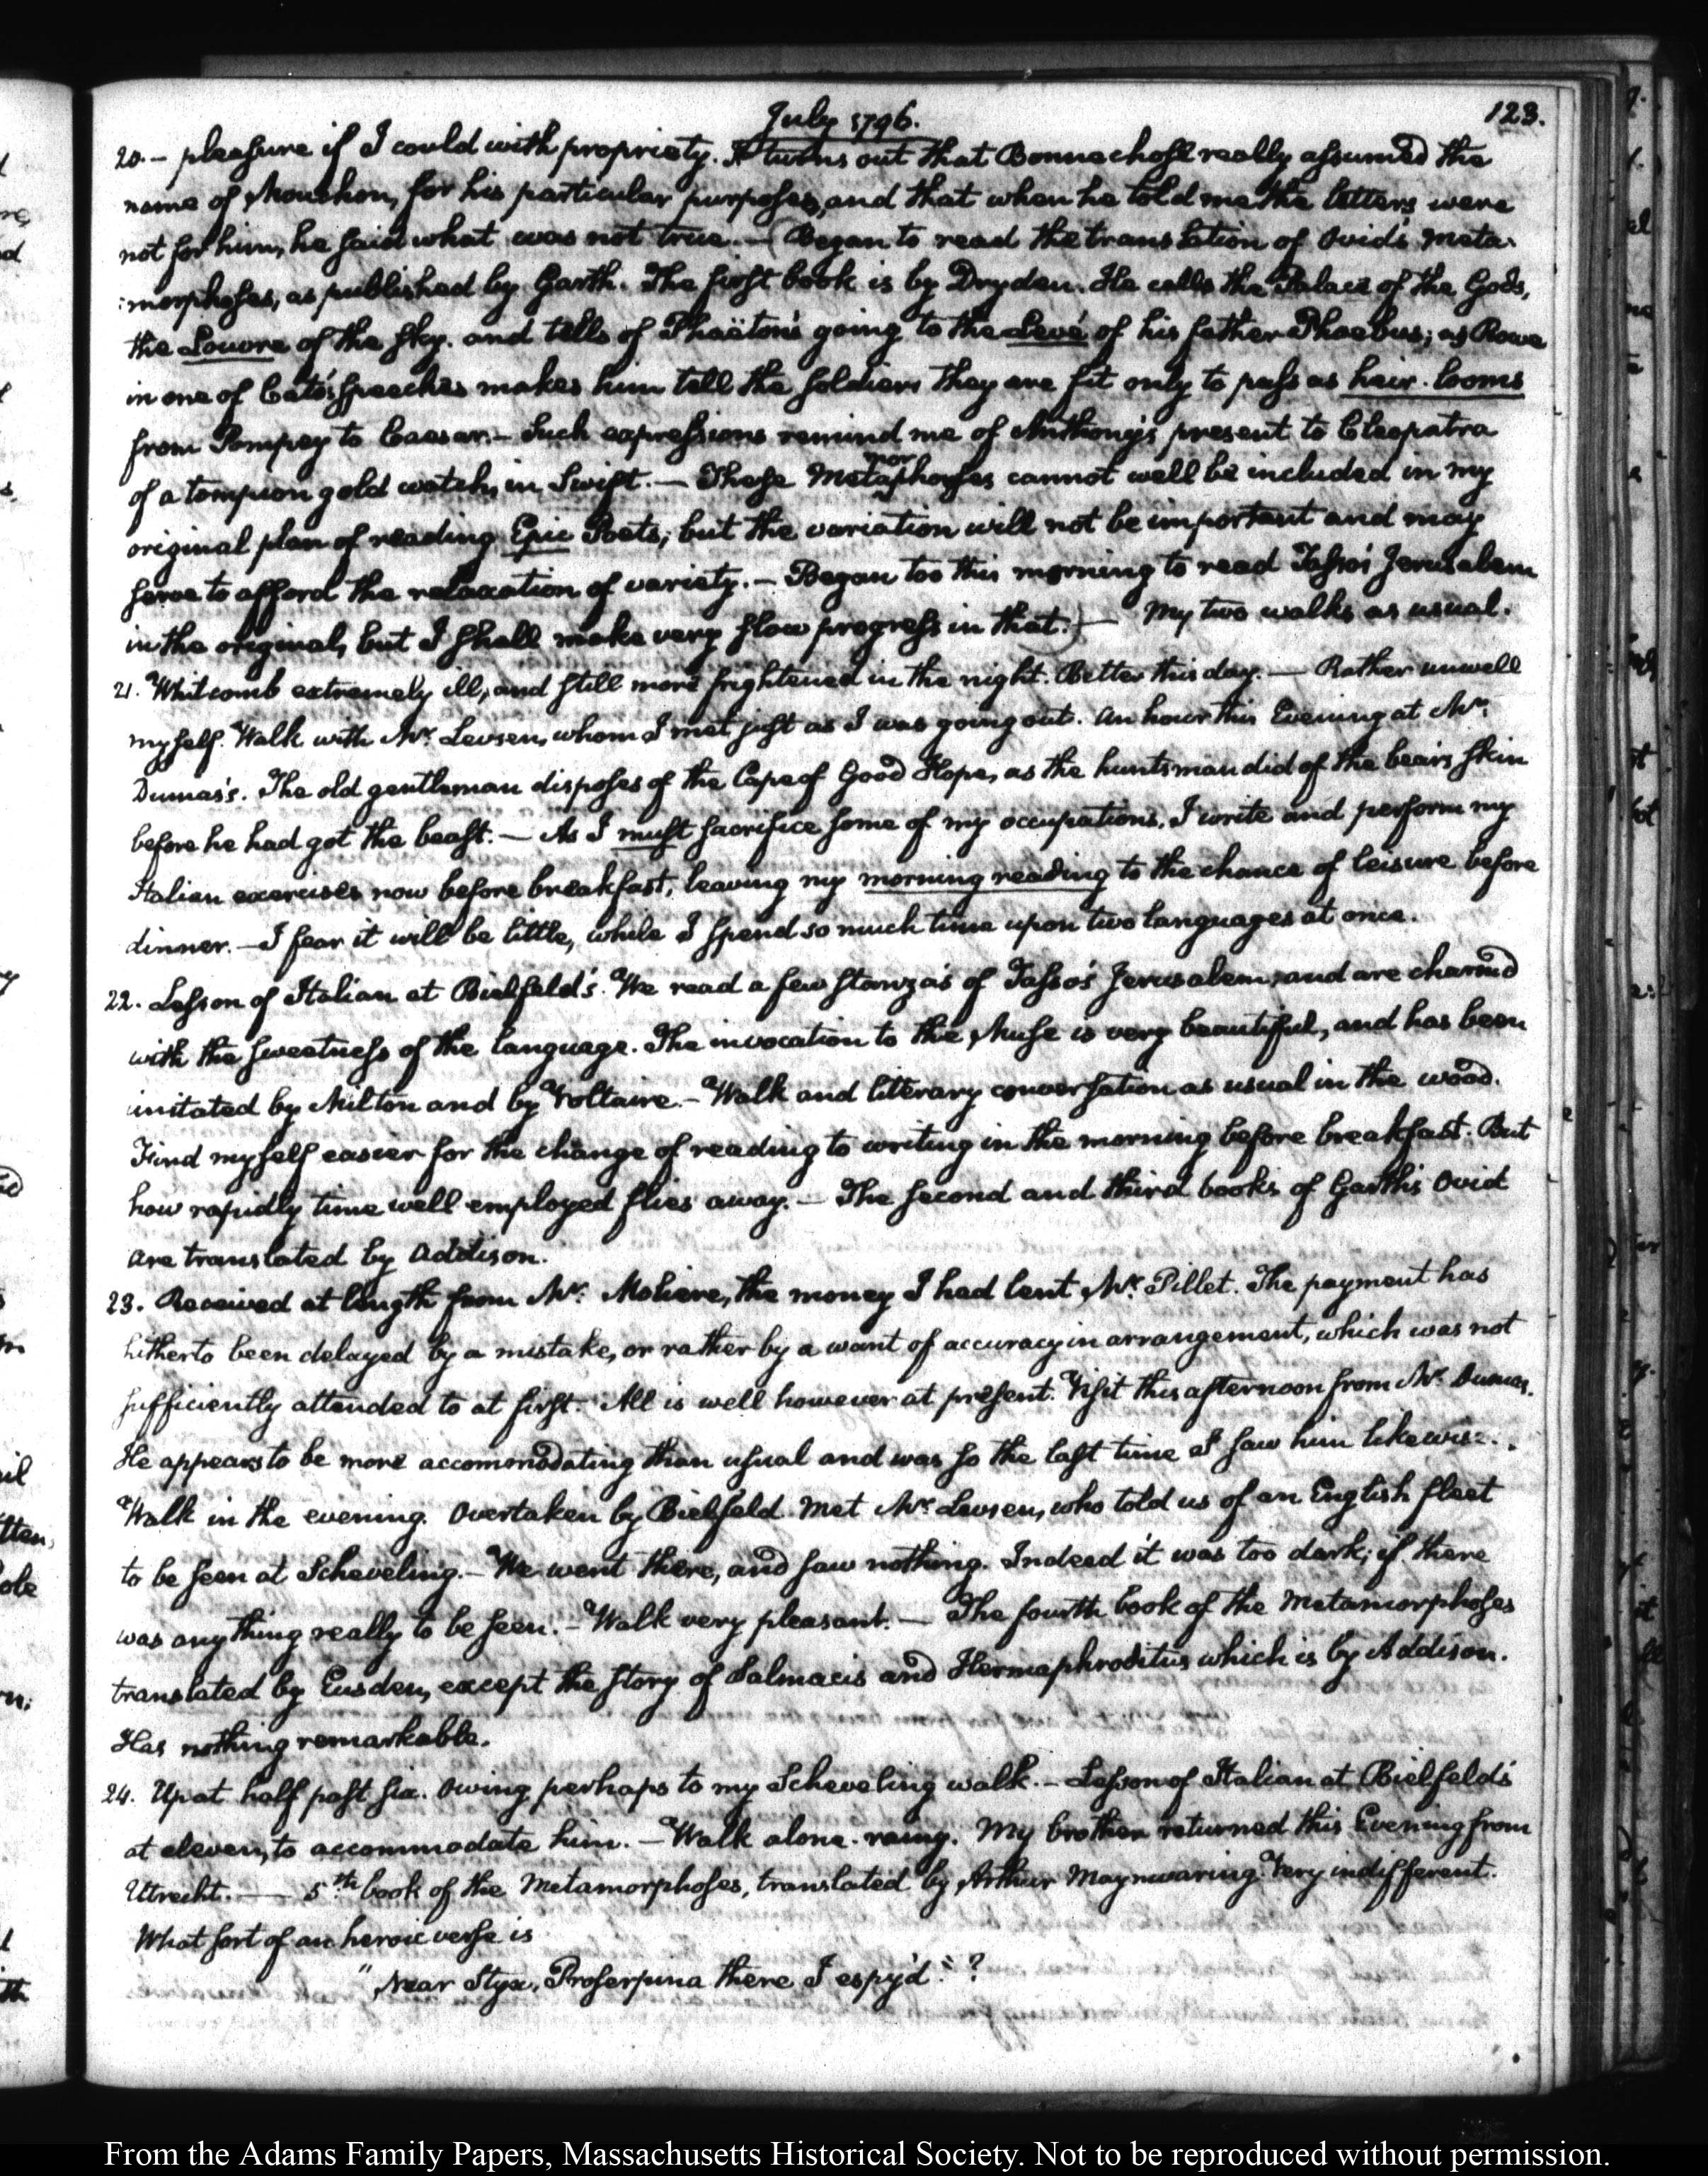 July 1796.
123.
20.— pleasure if I could with propriety. It turns out that Bonnechose really assumed the
name of Mouchon, for his particular purposes, and that when he told me the letters were
not for him, he said what was not true.— (Began to read the translation of Ovid's Meta-
:morphoses, as published by Garth. The first book is by Dryden. He calls the Palace of the Gods,
the Louvre of the sky. and tells of Phaëton's going to the Levé of his father Phoebus; as Rowe
in one of Cato's speeches makes him tell the soldiers they are fit only to pass as heir-looms
from Pompey to Caesar.— Such expressions remind me of Anthony's present to Cleopatra
of a tompion gold watch, in Swift.— These Metamorphoses cannot well be included in my
original plan of reading Epic Poets; but the variation will not be important and may
serve to afford the relaxation of variety.— Began too this morning to read Tasso's Jerusalem
in the original, but I shall make very slow progress in that.)— My two walks as usual.
21. Whitcomb extremely ill, and still more frightened in the night. Better this day.— Rather unwell
myself. Walk with Mr. Levsen, whom I met just as I was going out. An hour this Evening at Mr.
Dumas's. The old gentleman disposes of the Cape of Good Hope, as the huntsman did of the bear's skin
before he had got the beast.— As I must sacrifice some of my occupations, I write and perform my
Italian exercises now before breakfast, leaving my morning reading to the chance of leisure before
dinner.— I fear it will be little, while I spend so much time upon two languages at once.
22. Lesson of Italian at Bielfeld's. We read a few stanza's of Tasso's Jerusalem, and are charmed
with the sweetness of the language. The invocation to the Muse is very beautiful, and has been
imitated by Milton and by Voltaire.— Walk and literary conversation as usual in the wood.
Find myself easier for the change of reading to writing in the morning before breakfast. But
how rapidly time well employed flies away.— The second and third books of Garth's Ovid
are translated by Addison.
23. Received at length from Mr. Moliere, the money I had lent Mr. Pillet. The payment has
hitherto been delayed by a mistake, or rather by a want of accuracy in arrangement, which was not
sufficiently attended to at first. All is well however at present. Visit this afternoon from Mr. Dumas.
He appears to be more accommodating than usual and was so the last time I saw him likewise.
Walk in the evening. Overtaken by Bielfeld. Met Mr. Levsen, who told us of an English fleet
to be seen at Scheveling.— We went there, and saw nothing. Indeed it was too dark; if there
was any thing really to be seen.— Walk very pleasant.— The fourth book of the Metamorphoses
translated by Eusden, except the story of Salmacis and Hermaphroditus which is by Addison.
Has nothing remarkable.
24. Up at half past six. Owing perhaps to my Scheveling walk.— Lesson of Italian at Bielfeld's
at eleven, to accommodate him.— Walk alone. rainy. My brother returned this Evening from
Utrecht.— 5th book of the Metamorphoses, translated by Arthur Maynwaring. Very indifferent.
What sort of an heroic verse is
"Near Styx, Proserpina there I espy'd."?
From the Adams Family Papers, Massachusetts Historical Society. Not to be reproduced without permission.